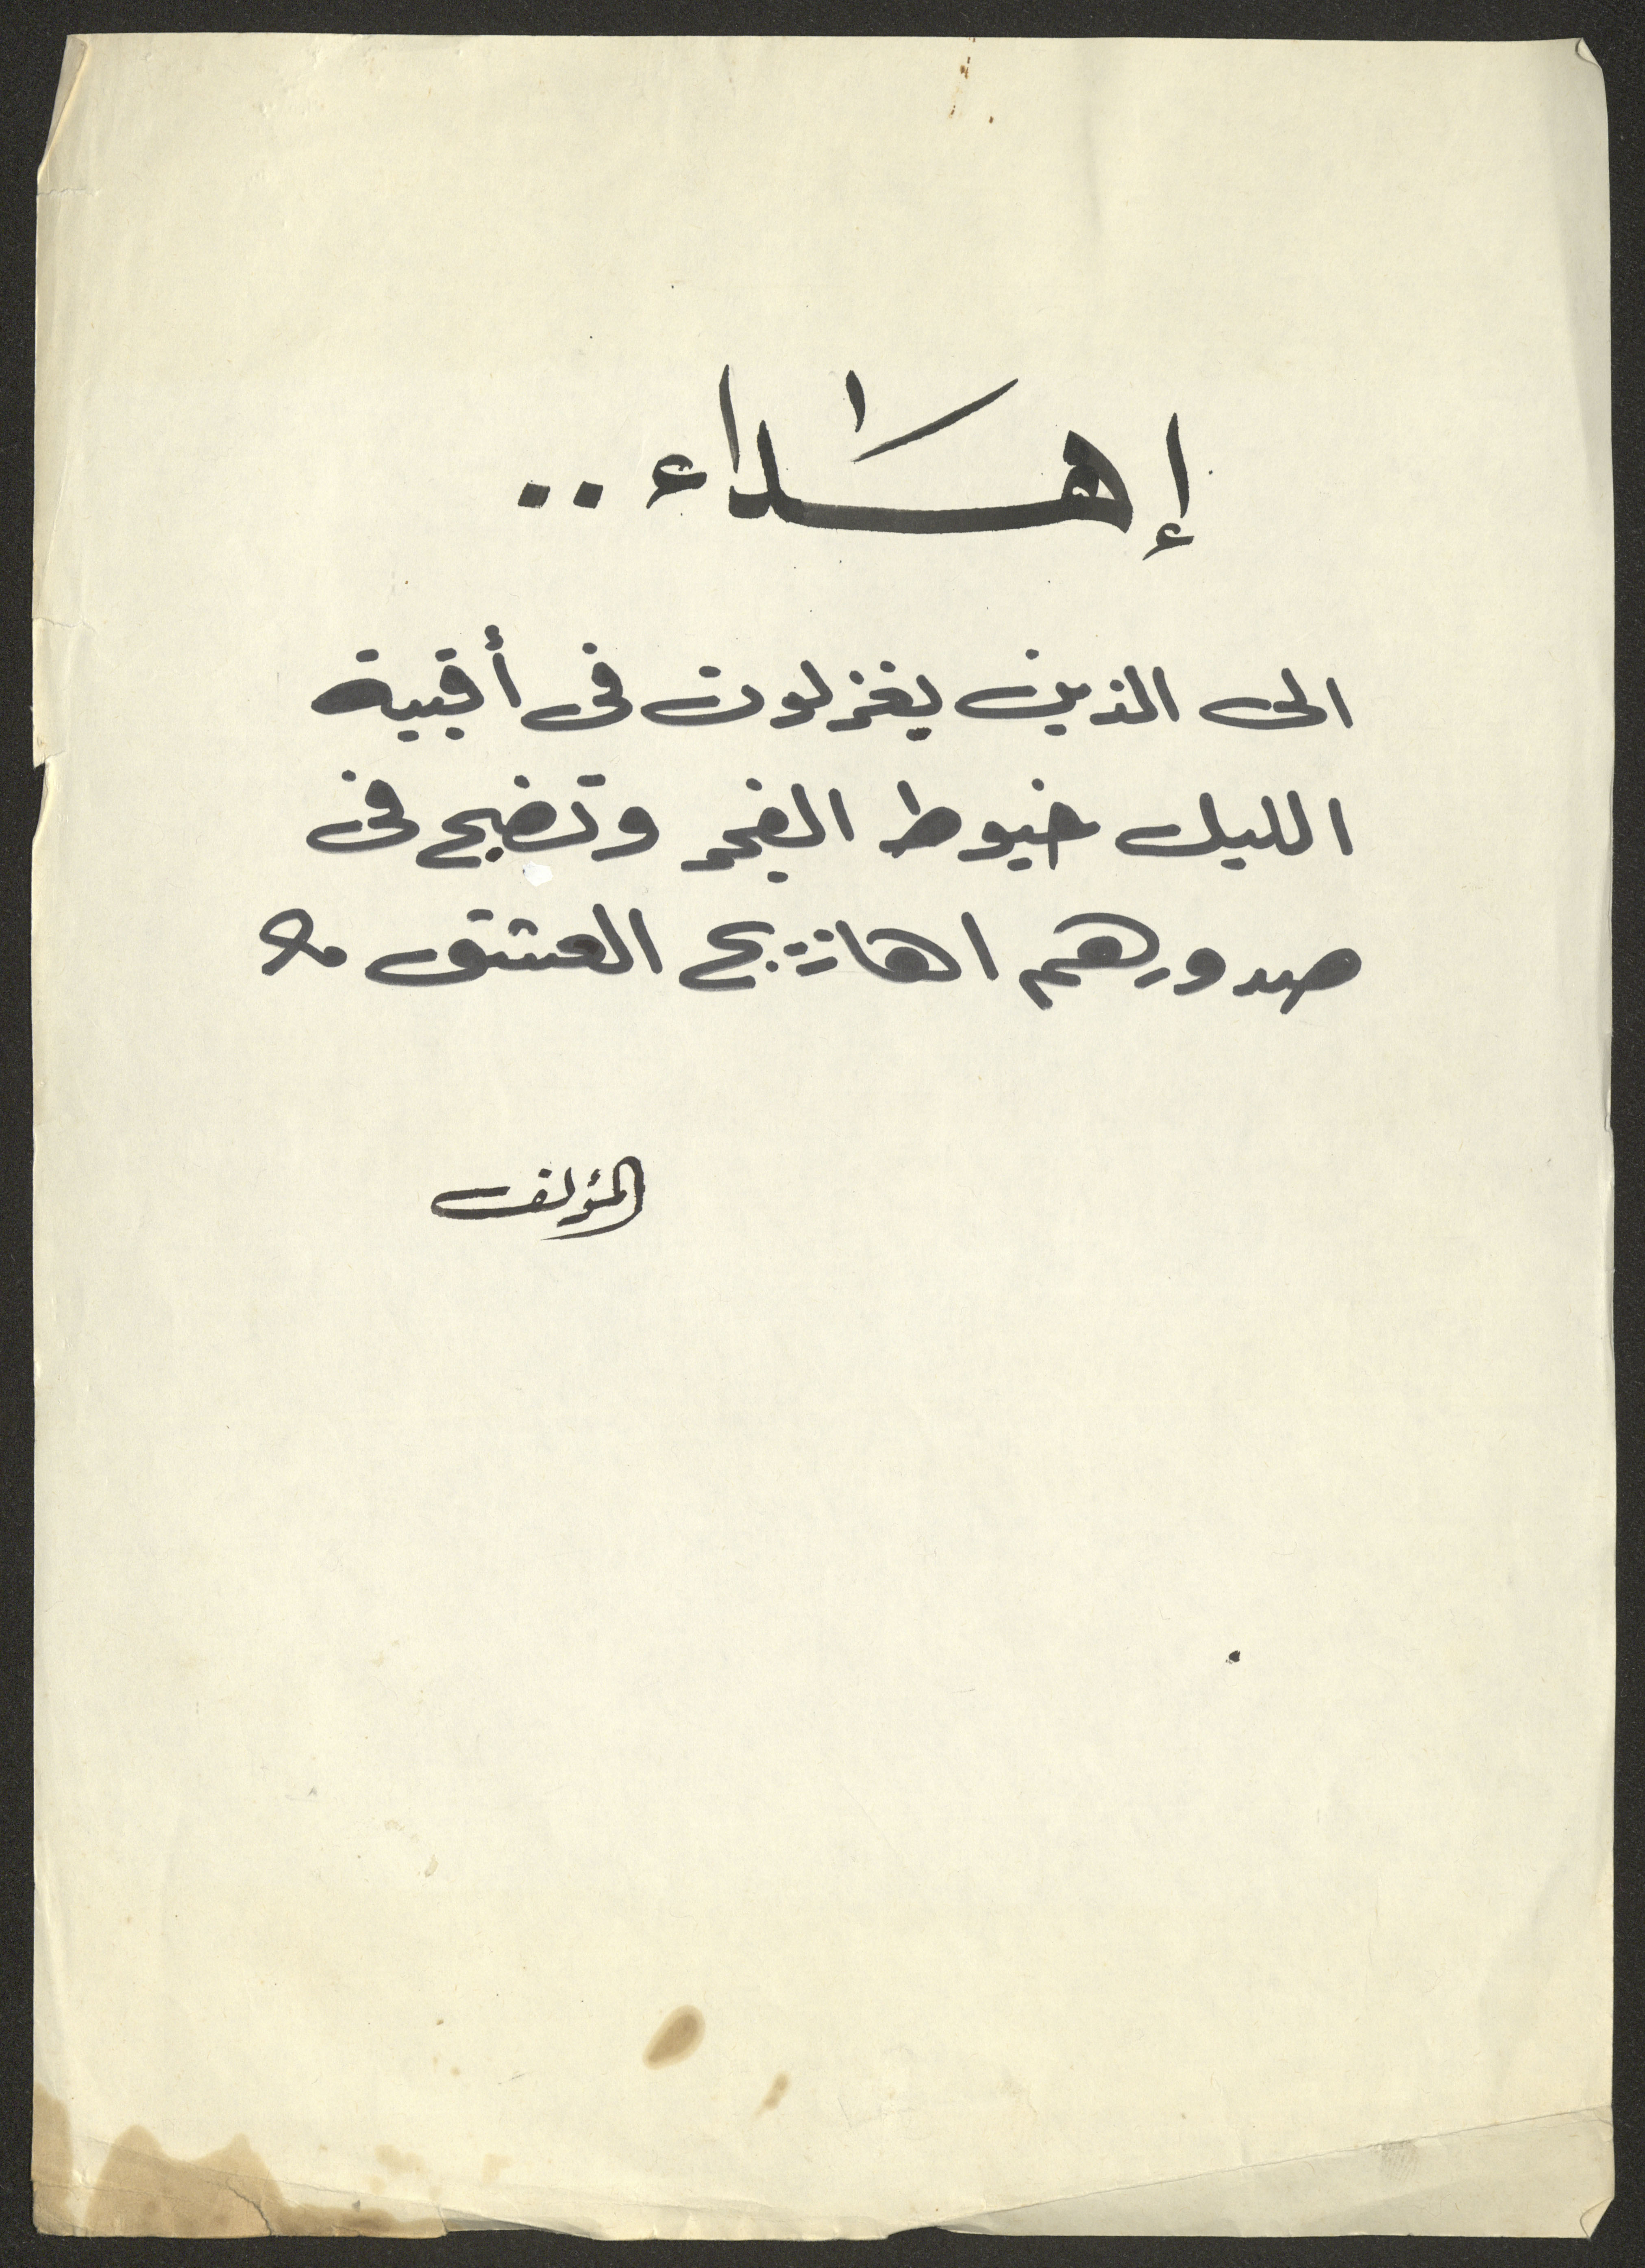 إهداء ..
الى الذين يغزلون فى أقبية
الليل خيوط الفجر وتضج فى
صدورهم اهازيج العشق
المؤلف